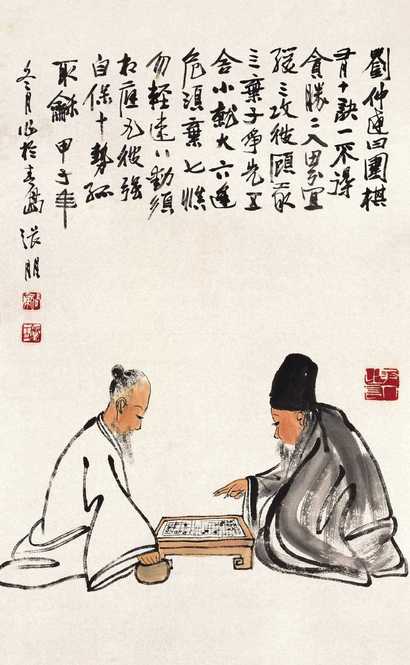 劉仲達曰圍棋
有十訣一不得
貪勝二入界宜
緩三攻彼顧我
三棄子爭先五
舍小就大六逢
危須棄七慎
勿輕速八動須
相應九彼強
自保十勢孤
取龢甲子年
冬月作於青島張朋